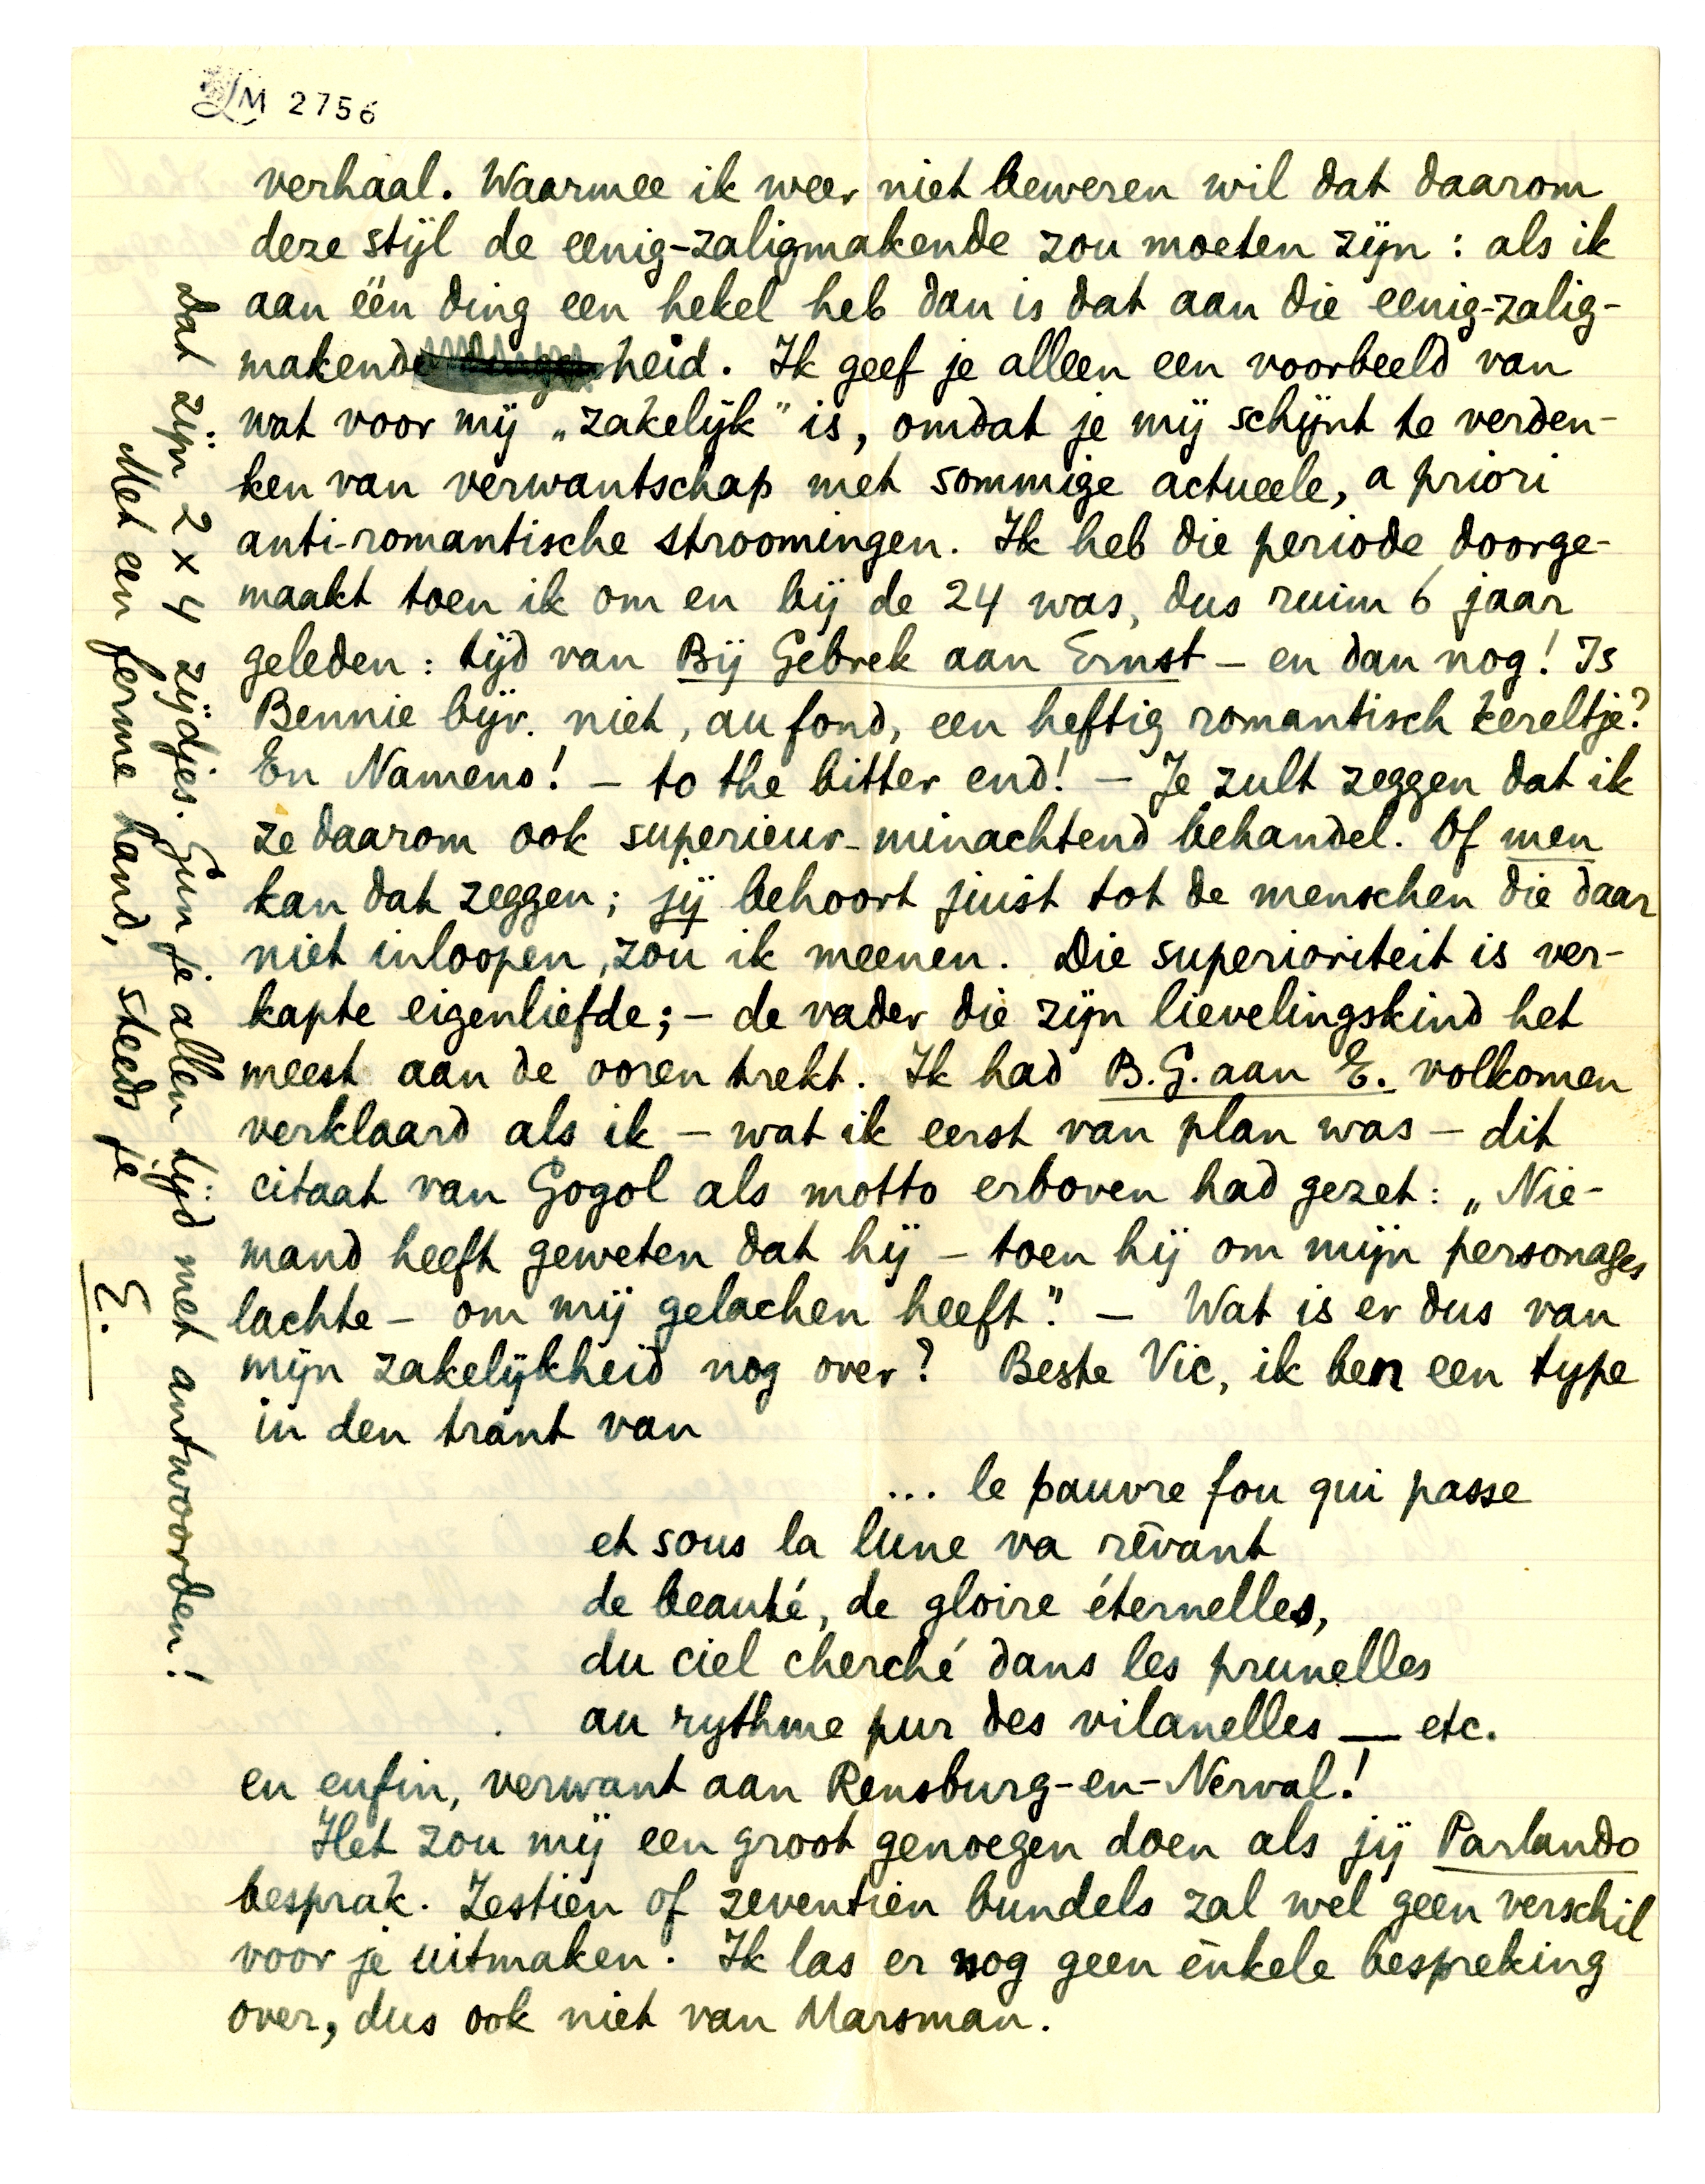 LM 2756
verhaal. Waarmee ik weer niet beweren wil dat daarom
deze stijl de eenig-zaligmakende zou moeten zijn: als ik
aan één ding een hekel heb dan is dat aan die eenig-zalig-
makendeheid. Ik geef je alleen een voorbeeld van
wat voor mij „zakelijk" is, omdat je mij schijnt te verden-
ken van verwantschap met sommige actueele, a priori
anti-romantische stroomingen. Ik heb die periode doorge-
maakt toen ik om en bij de 24 was, dus ruim 6 jaar
geleden: tijd van Bij Gebrek aan Ernst — en dan nog! Is
Bennie bijv. niet, au fond, een heftig romantisch kereltje?
En Nameno! — to the bitter end! — Je zult zeggen dat ik
ze daarom ook superieur-minachtend behandel. Of men
kan dat zeggen; jij behoort juist tot de menschen die daar
niet inloopen, zou ik meenen. Die superioriteit is ver-
kapte eigenliefde; — de vader die zijn lievelingskind het
meest aan de ooren trekt. Ik had B.G. aan E. volkomen
verklaard als ik — wat ik eerst van plan was — dit
citaat van Gogol als motto erboven had gezet: „Nie-
mand heeft geweten dat hij — toen hij om mijn personages
lachte — om mij gelachen heeft". — Wat is er dus van
mijn zakelijkheid nog over? Beste Vic, ik ben een type
in den trant van
... le pauvre fou qui passe
et sous la lune va rêvant
de beauté, de gloire éternelles,
du ciel cherché dans les prunelles
au rythme pur des vilanelles — etc.
en enfin, verwant aan Rensburg-en-Nerval!
Het zou mij een groot genoegen doen als jij Parlando
besprak. Zestien of zeventien bundels zal wel geen verschil
voor je uitmaken. Ik las er nog geen enkele bespreking
over, dus ook niet van Marsman.
Dat zijn 2 x 4 zijdjes. Gun je allen tijd met antwoorden!
Met een ferme hand, steeds je
E.